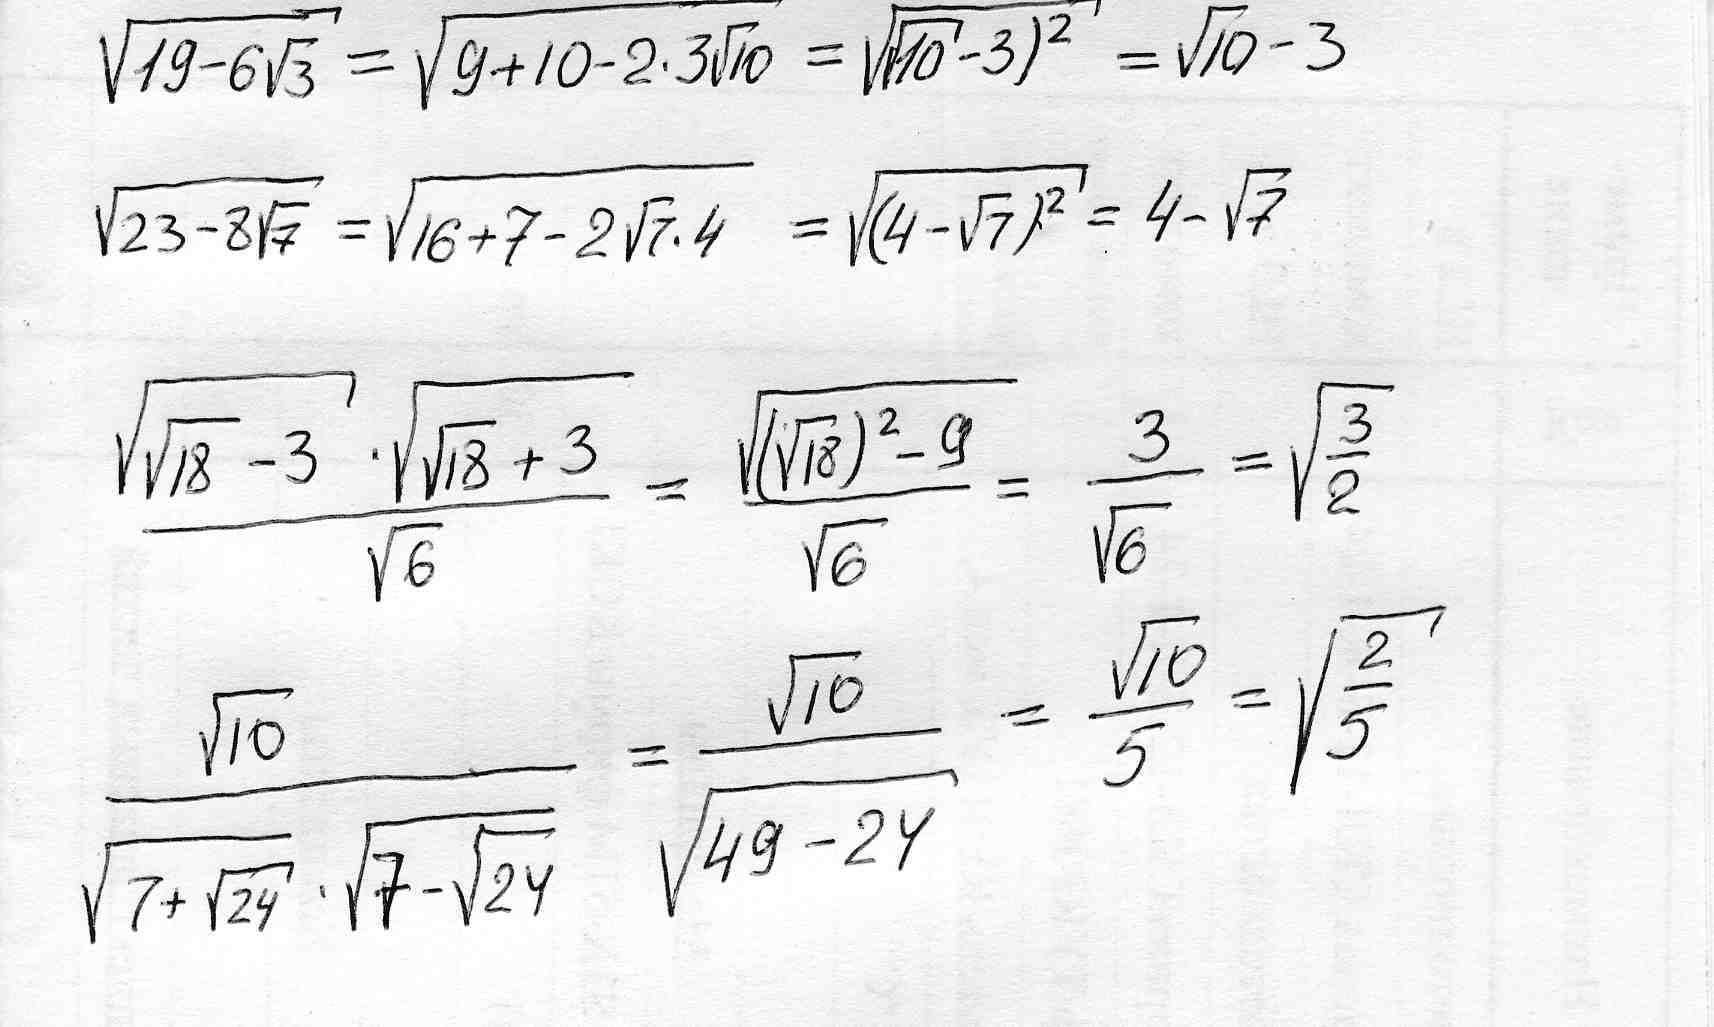 √(19-6√3) = √(9+10-2·3√10) = √((√10-3)²) = √10-3
√(23-8√7) = √(16+7-2√7·4) = √((4-√7)²) = 4-√7
(√(√18-3)·√(√18+3))/√6 = √((√18)²-9)/√6 = 3/√6 = √(3/2)
√10/(√(7+√24)·√(7-√24)) = √10/√(49-24) = √10/5 = √(2/5)